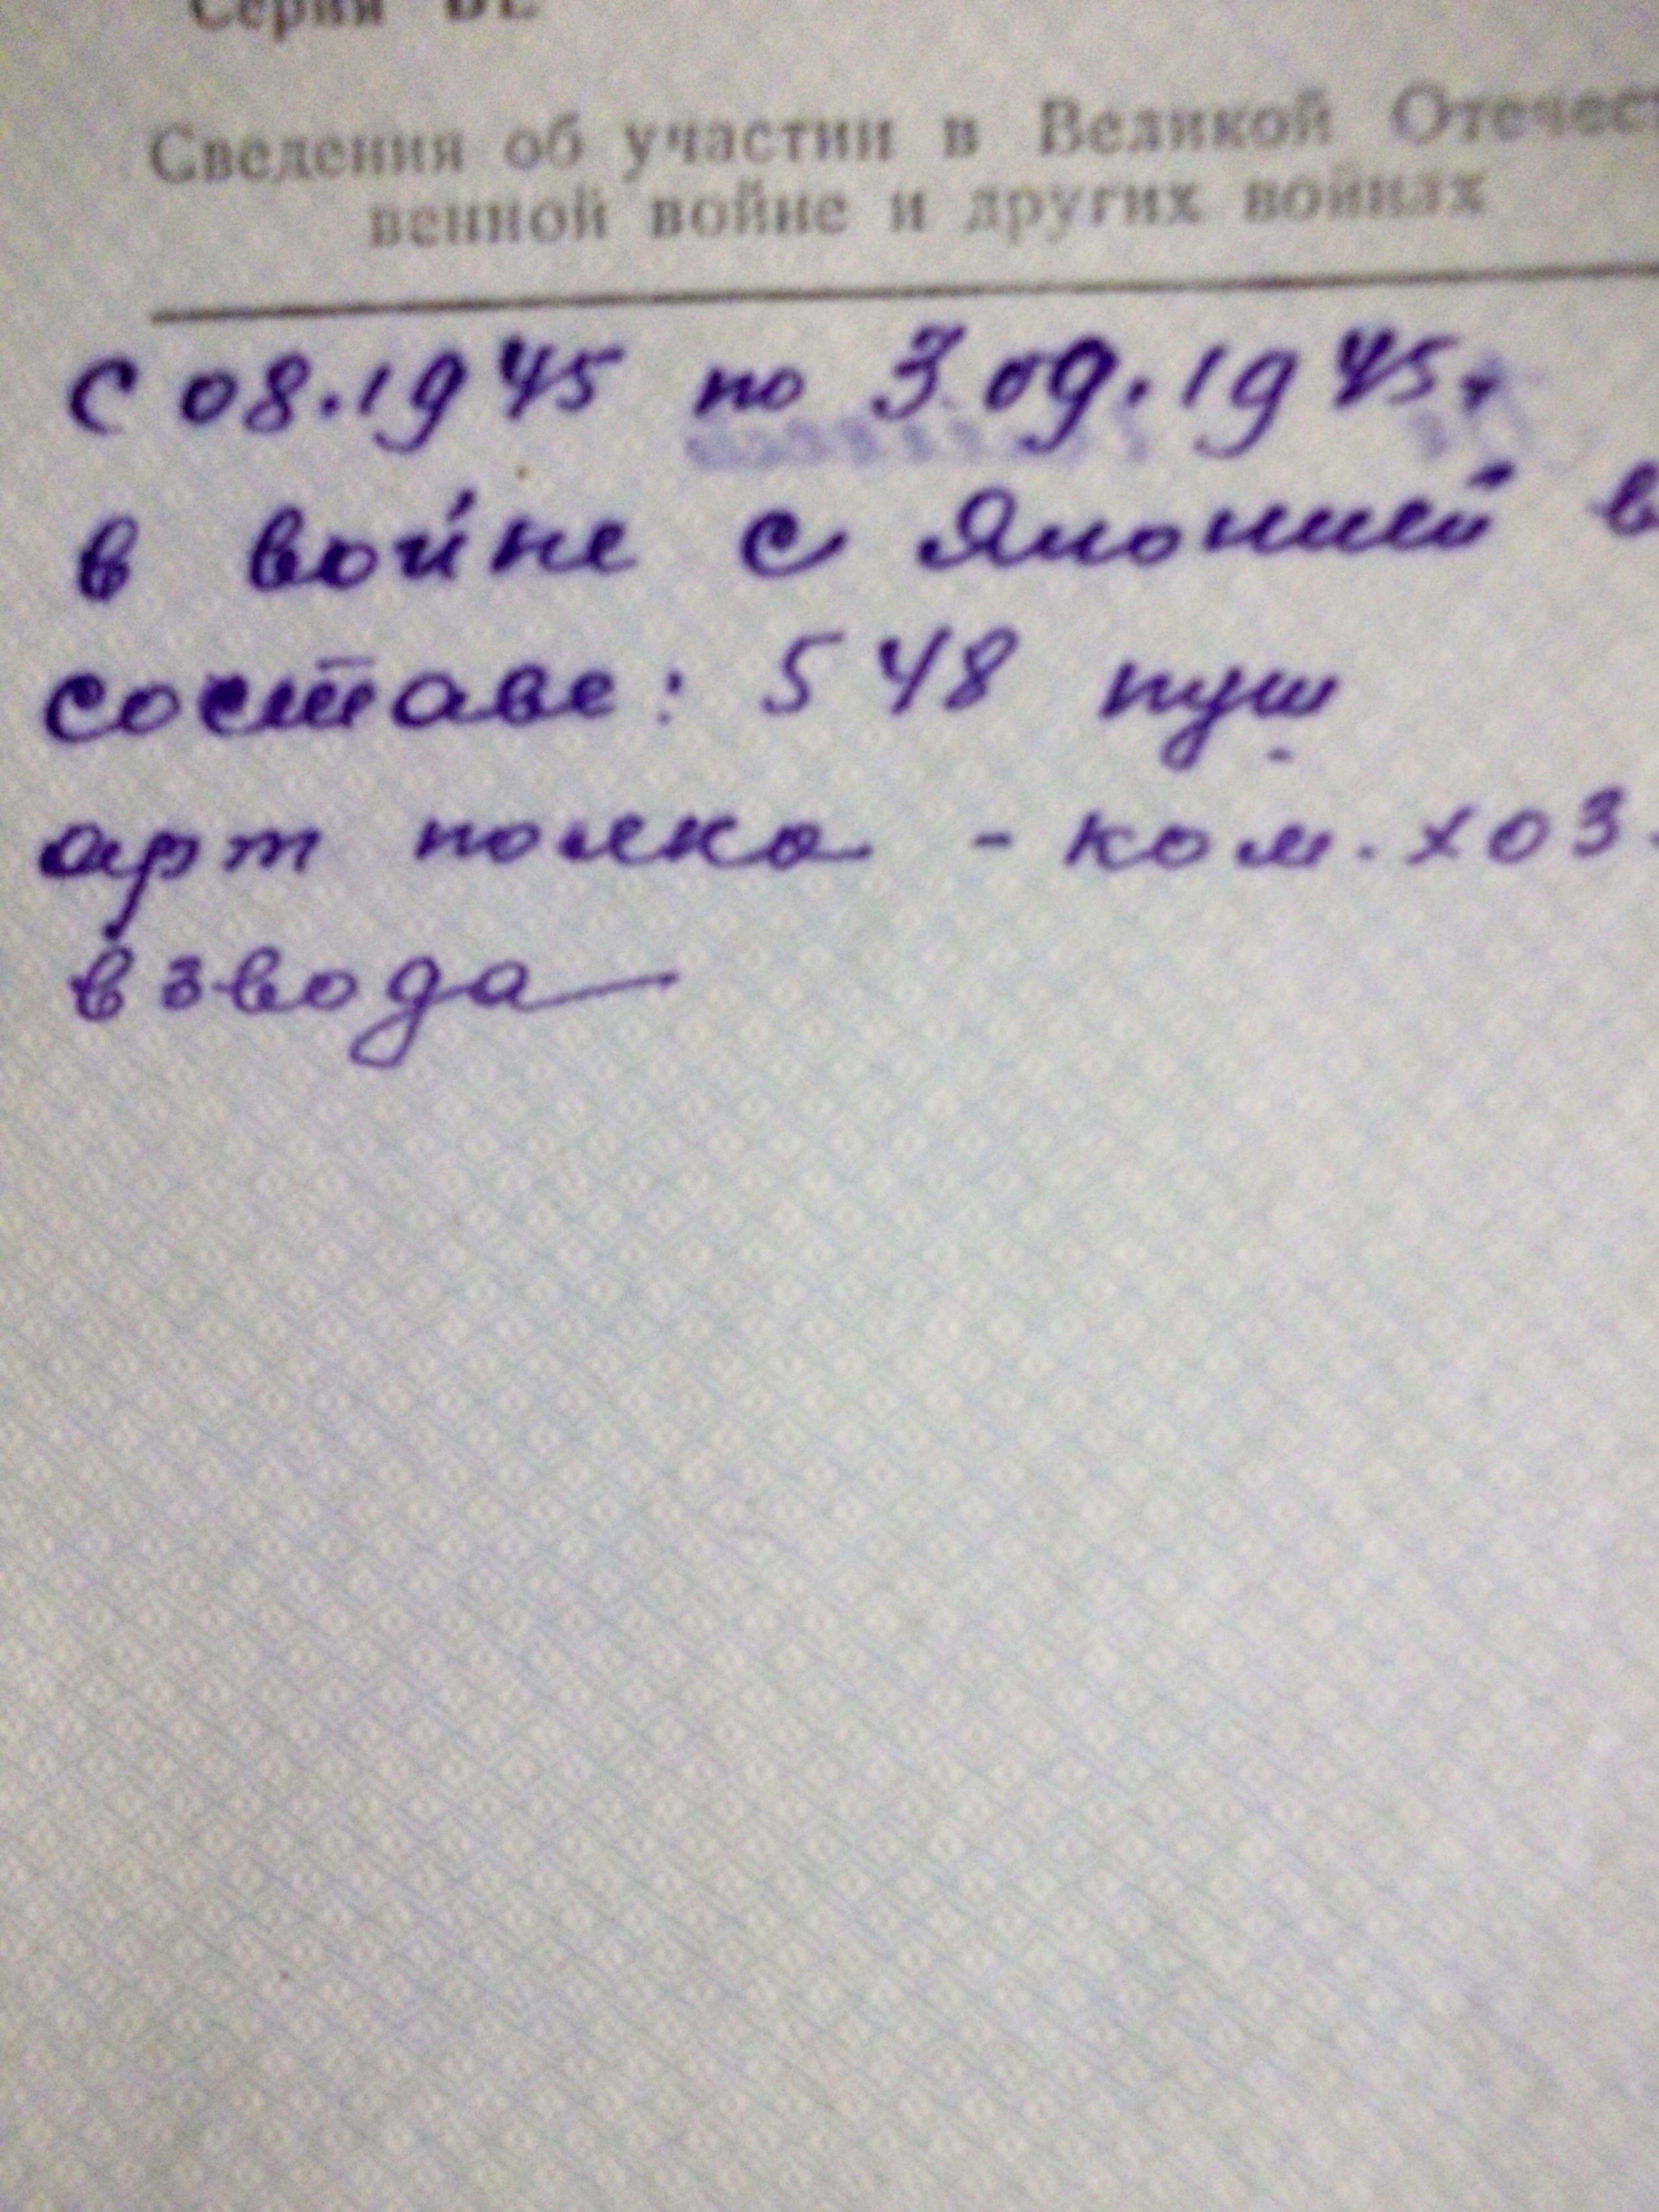 Серия
Сведения об участии в Великой Отечест
венной войне и других войнах
С 08.1945 по 3.09.1945г
в войне с Японией в
составе: 548 пуш
арт полка - ком. хоз.
взвода